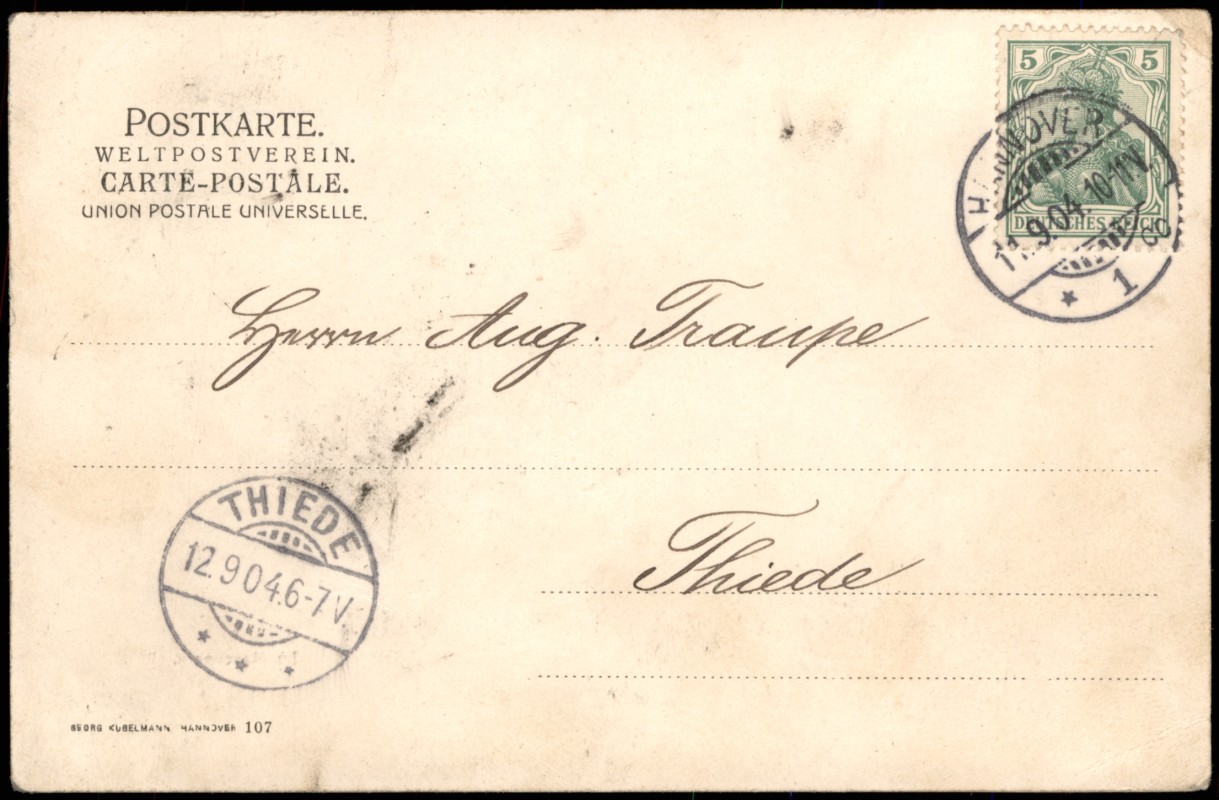 POSTKARTE.
WELTPOSTVEREIN.
CARTE-POSTALE.
UNION POSTALE UNIVERSELLE.
5 5
DEUTSCHES REICH
HANNOVER
11.9.04. 10-11N.
* 1
Herrn Aug. Traupe
Thiede
THIEDE
12.9 04.6-7V.
* * *
GEORG KUGELMANN HANNOVER 107